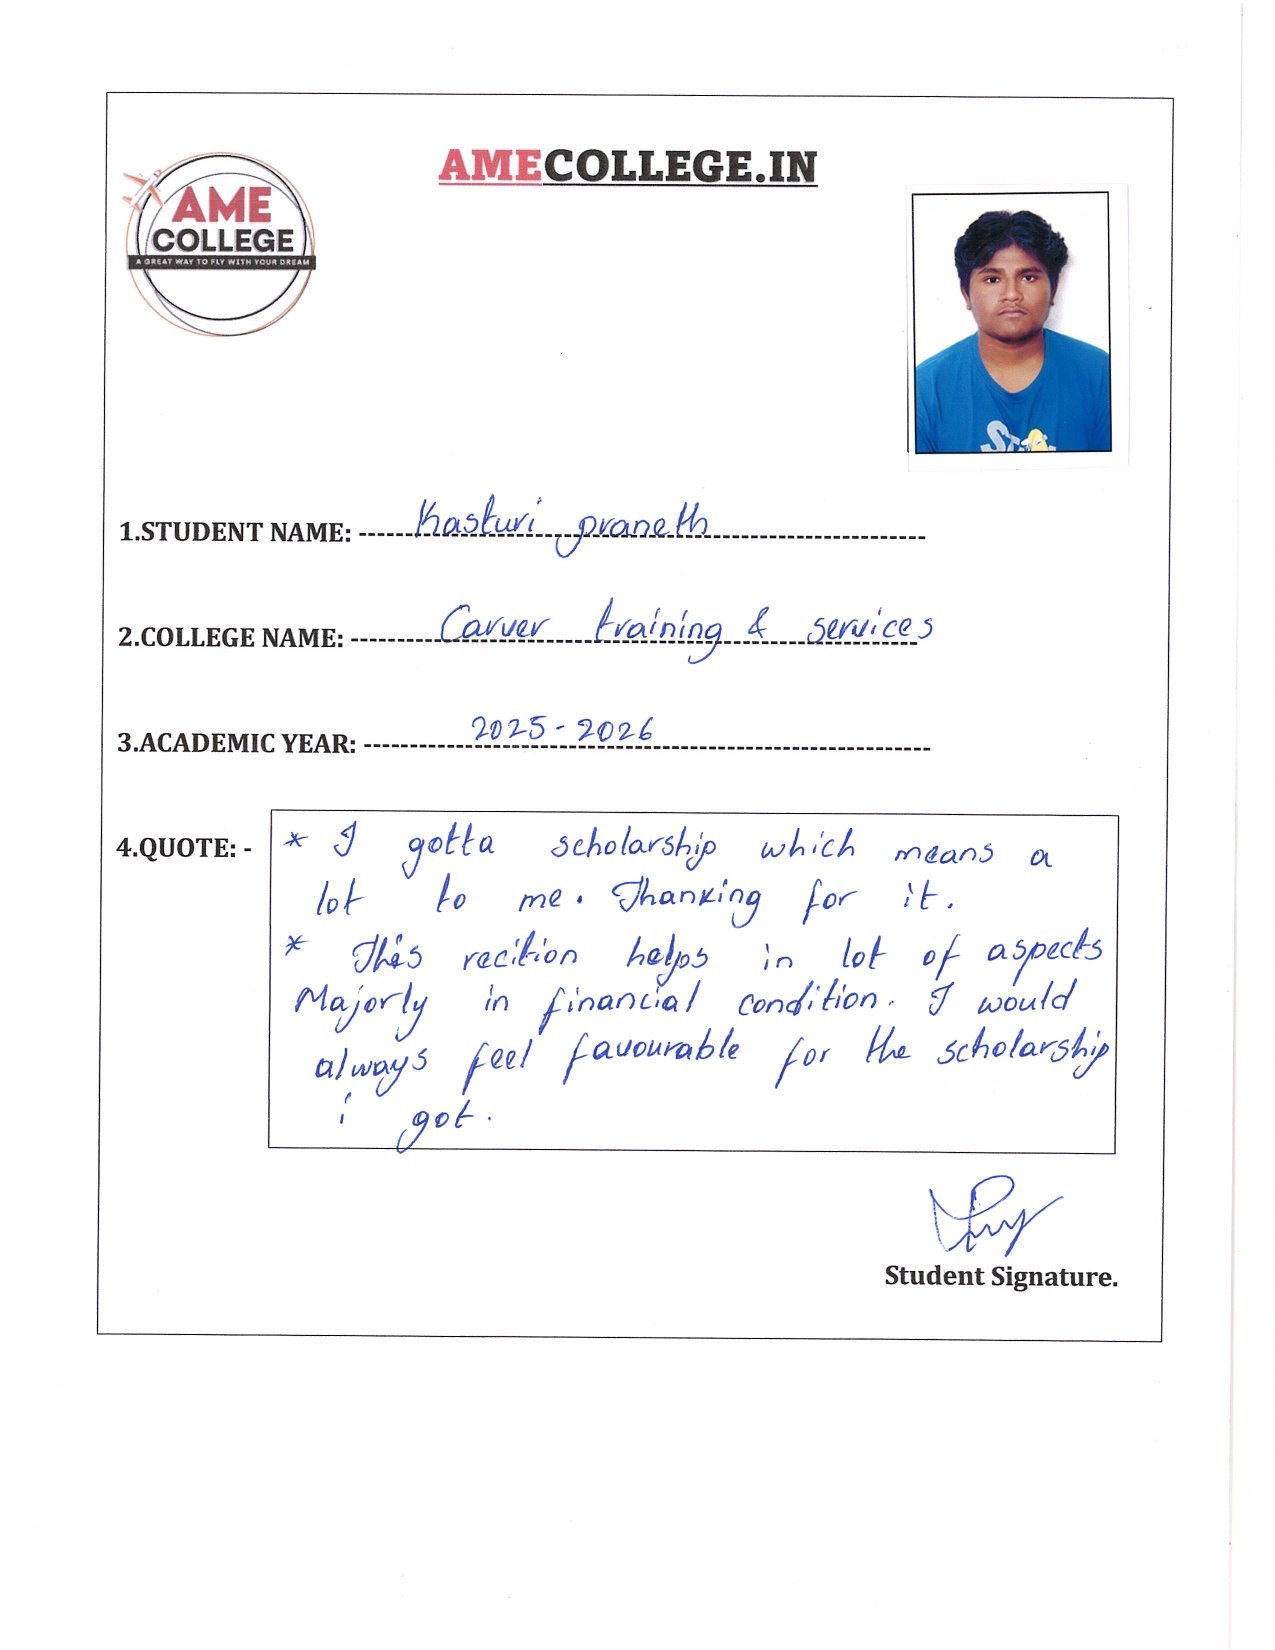 AMECOLLEGE.IN
AME
COLLEGE
A GREAT WAY TO FLY WITH YOUR DREAM
1.STUDENT NAME: Kasturi praneth
2.COLLEGE NAME: Carver training & services
3.ACADEMIC YEAR: 2025-2026
4.QUOTE: - * I gotta scholarship which means a
lot to me. Thanking for it.
* This recition helps in lot of aspects
Majorly in financial condition. I would
always feel favourable for the scholarship
i got.
Student Signature.